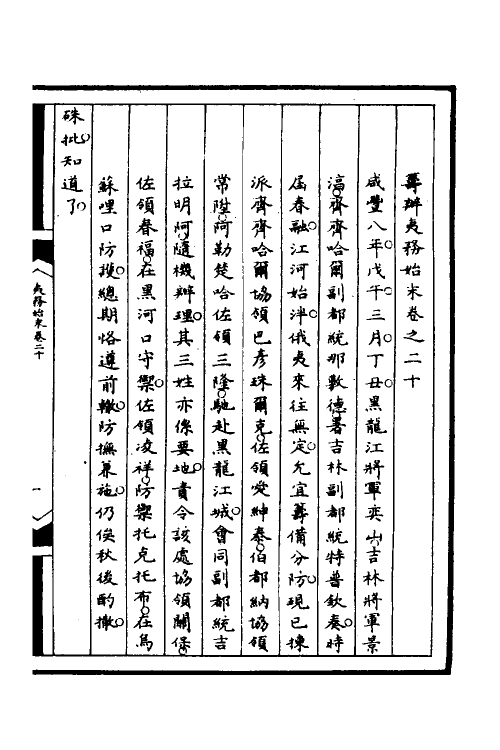 籌辦夷務始末卷之二十
咸豐八年戊午三月丁丑黑龍江將軍奕山吉林將軍景
淓齊齊哈爾副都統那敷德署吉林副都統特普欽奏時
屆春融江河始泮俄夷來往無定允宜籌備分防現已揀
派齊齊哈爾協領巴彥珠爾克佐領愛紳泰伯都納協領
常陞阿勒楚哈佐領三隆馳赴黑龍江城會同副都統吉
拉明阿隨機辦理其三姓亦係要地責令該處協領關保
佐領春福在黑河口守禦佐領凌祥防禦托克托布在烏
蘇哩口防護總期恪遵前轍防撫兼施仍俟秋後酌撤
硃批知道了
夷務始末卷二十
一